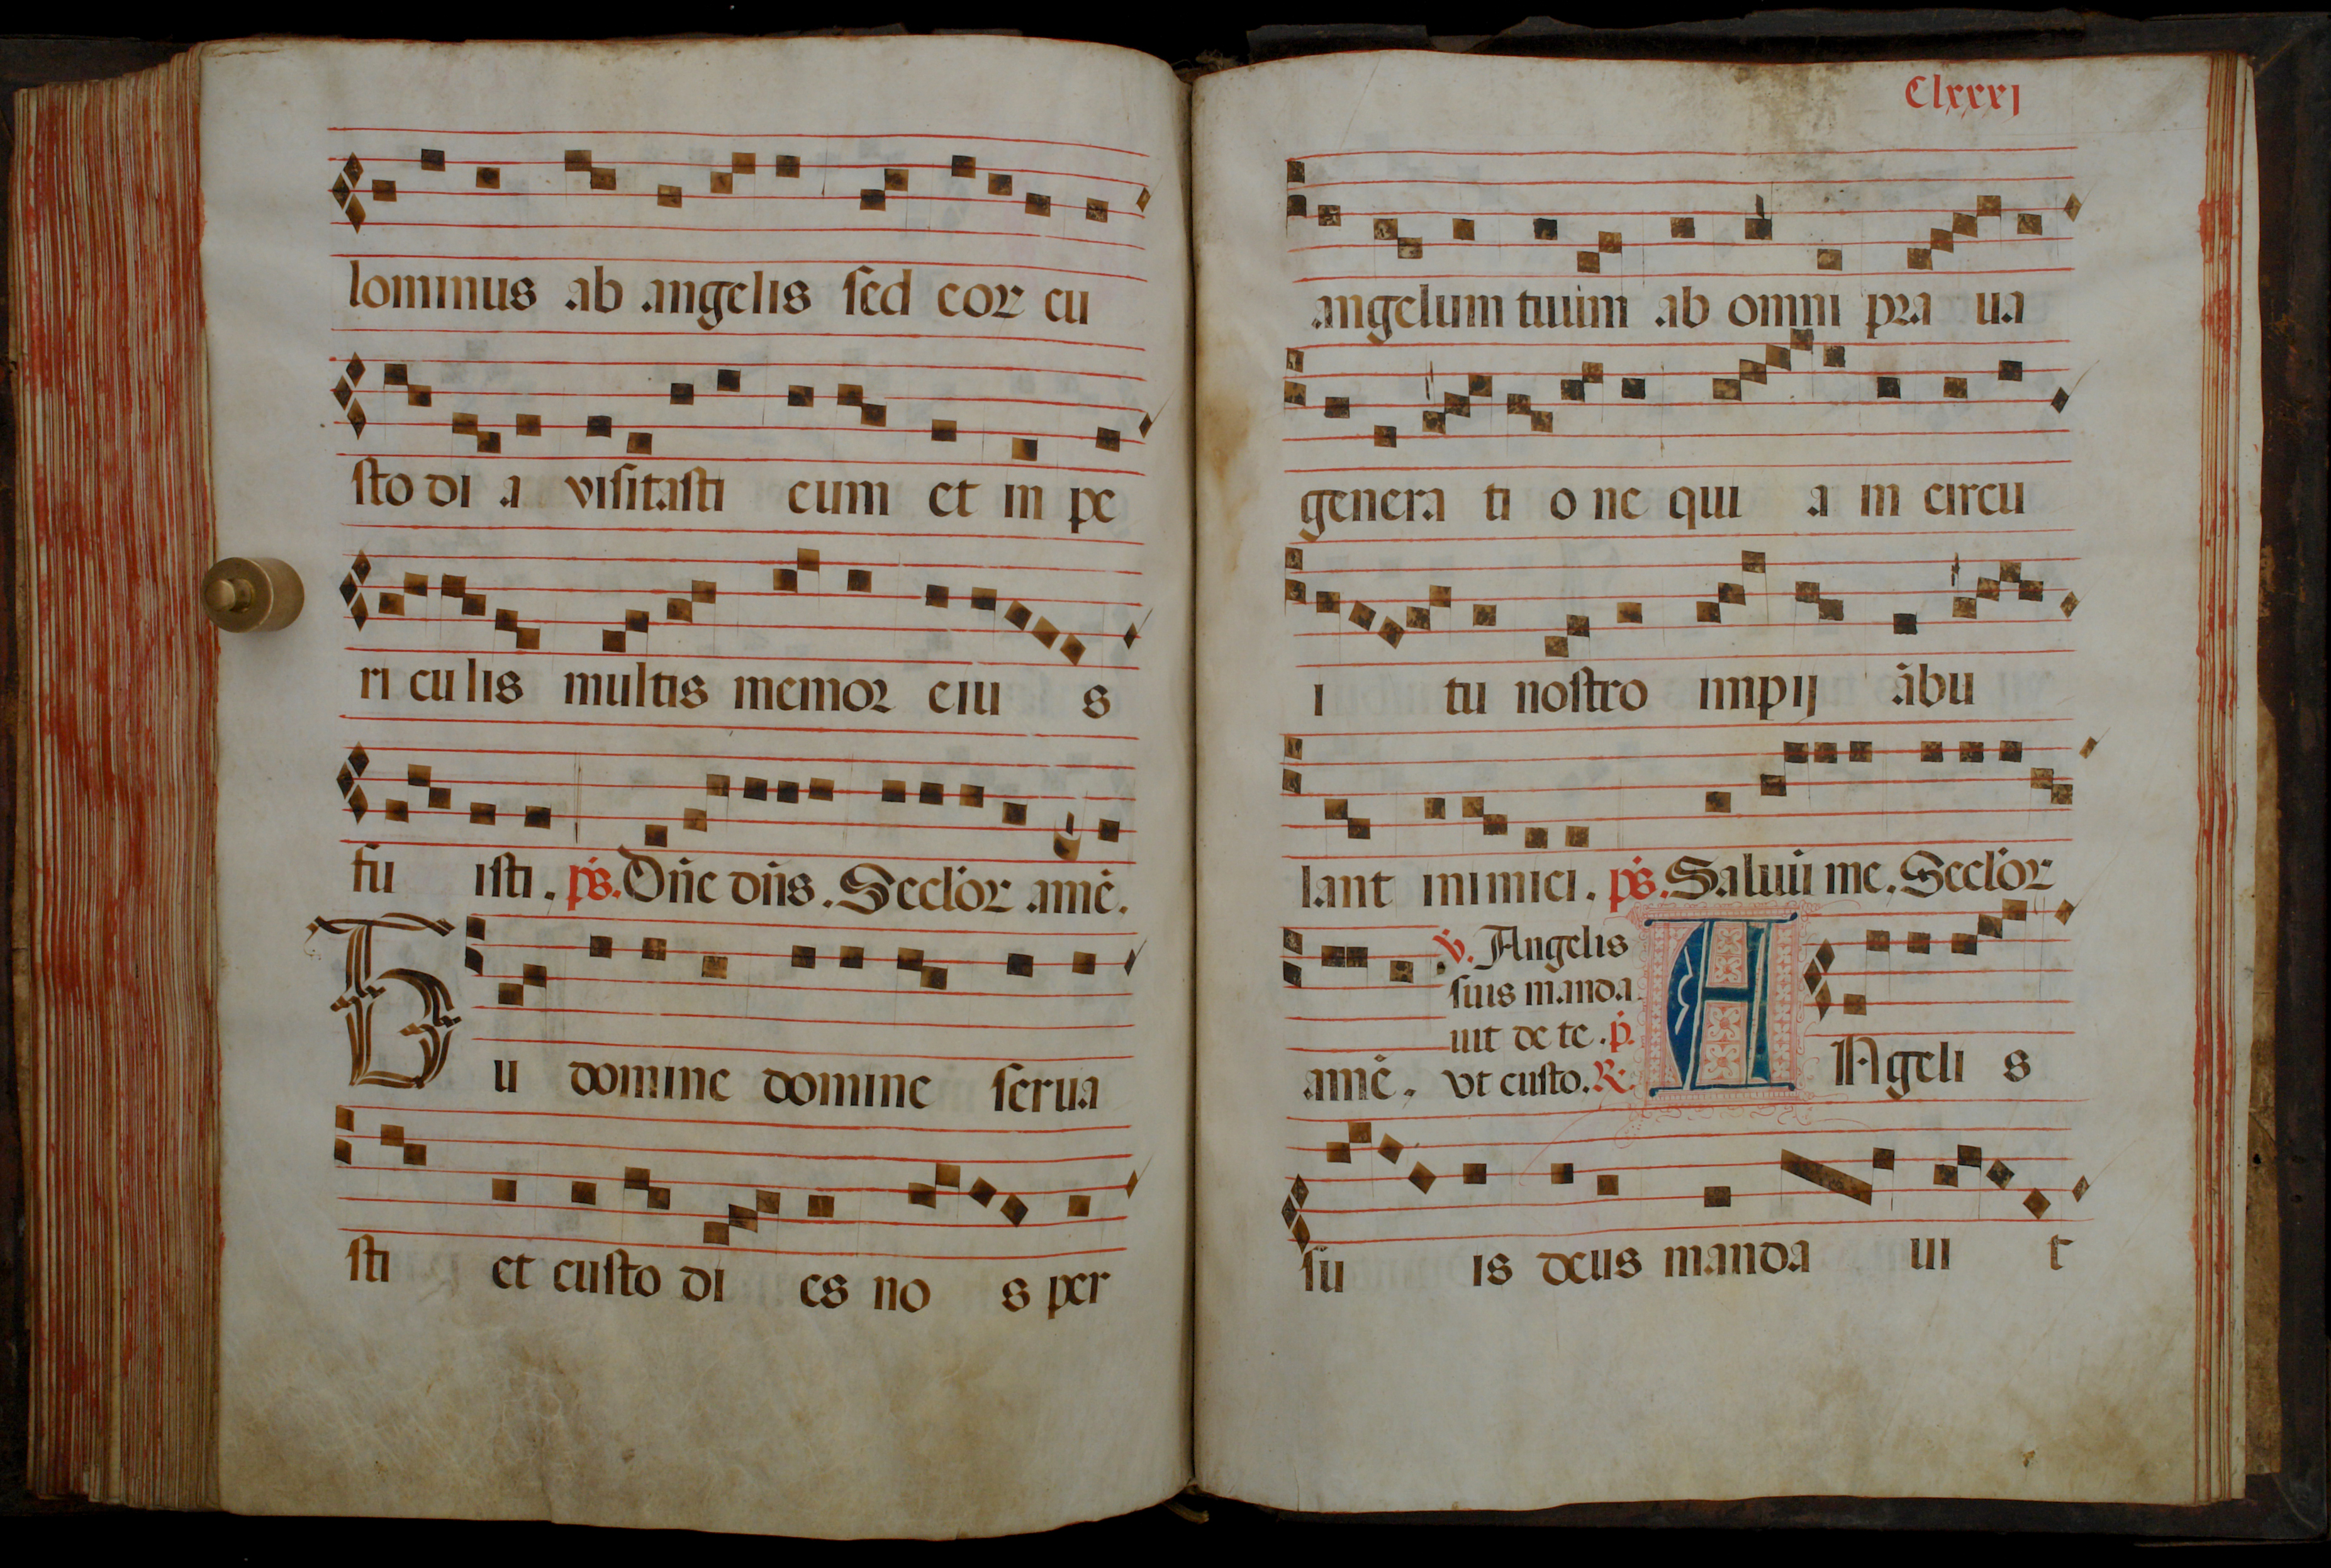 lominus ab angelis sed eor cu
sto di a visitasti eum et in pe
ri cu lis multis memor eiu s
fu isti. ps. Dn̄e dn̄s. Secl'or amē.
Tu domine domine serua
sti et custo di es no s per
Clxxxj
angelum tuum ab omni pra ua
genera ti o ne qui a in circu
i tu nostro impij ābu
lant inimici. ps. Saluū me. Secl'or
amē. v. Angelis
suis manda
uit de te. p.
vt custo. R.
ANgeli s
su is deus manda ui t